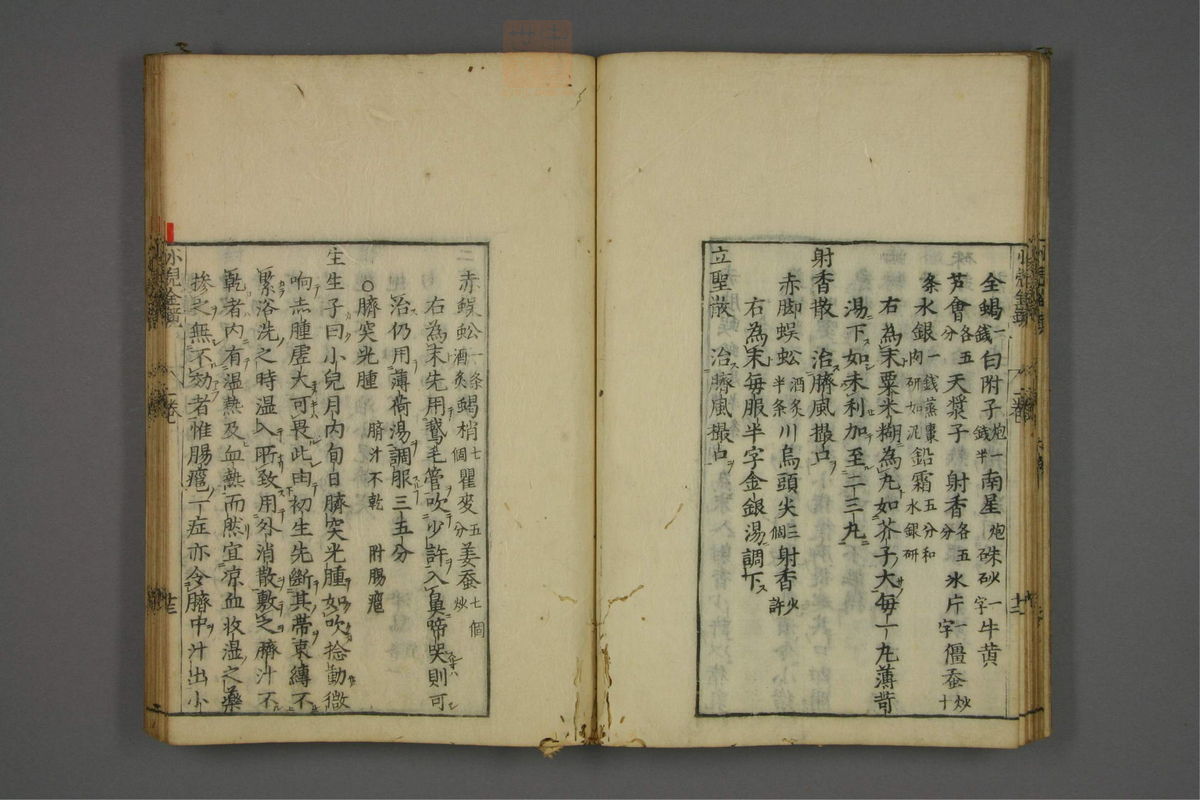 全蝎一錢白附子炮一錢半南星炮硃砂一字牛黄
芦會各五分天漿子射香各五分氷片一字僵蚕炒十
条水銀一錢蒸棗肉研如泥鉛霜五分和水銀研
右為末粟米糊為丸如芥子大每一丸薄苛
湯下如未利加至二三丸
射香散 治臍風撮口
赤脚蜈蚣酒炙半条川烏頭尖三個射香少許
右為末每服半字金銀湯調下
立聖散 治臍風撮口
赤蜈蚣一条酒炙蝎梢七個瞿麦五分姜蚕七個炒
右為末先用鵝毛管吹少許入鼻啼哭則可
治仍用薄荷湯調服三五分
○臍突光腫 臍汁不乾 附腸癰
生生子曰小兒月内旬日臍突光腫如吹捻動微
响赤腫虛大可畏此由初生先斷其帶束縛不
緊浴洗之時温入所致用外消散敷之臍汁不
乾者内有温熱及血熱而然宜凉血收湿之藥
摻之無不効者惟腸癰一症亦令臍中汁出小